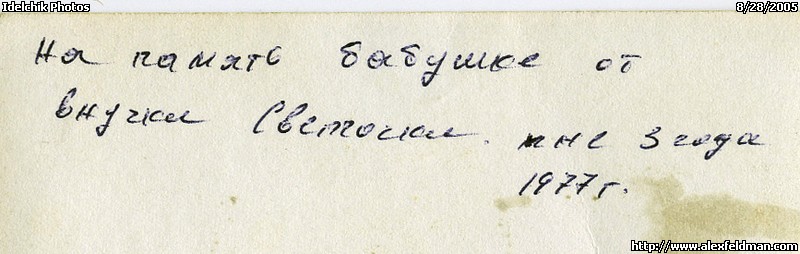 Idelchik Photos 8/28/2005
На память бабушке от
внучки Светочки. мне 3 года
1977г.
http://www.alexfeldman.com